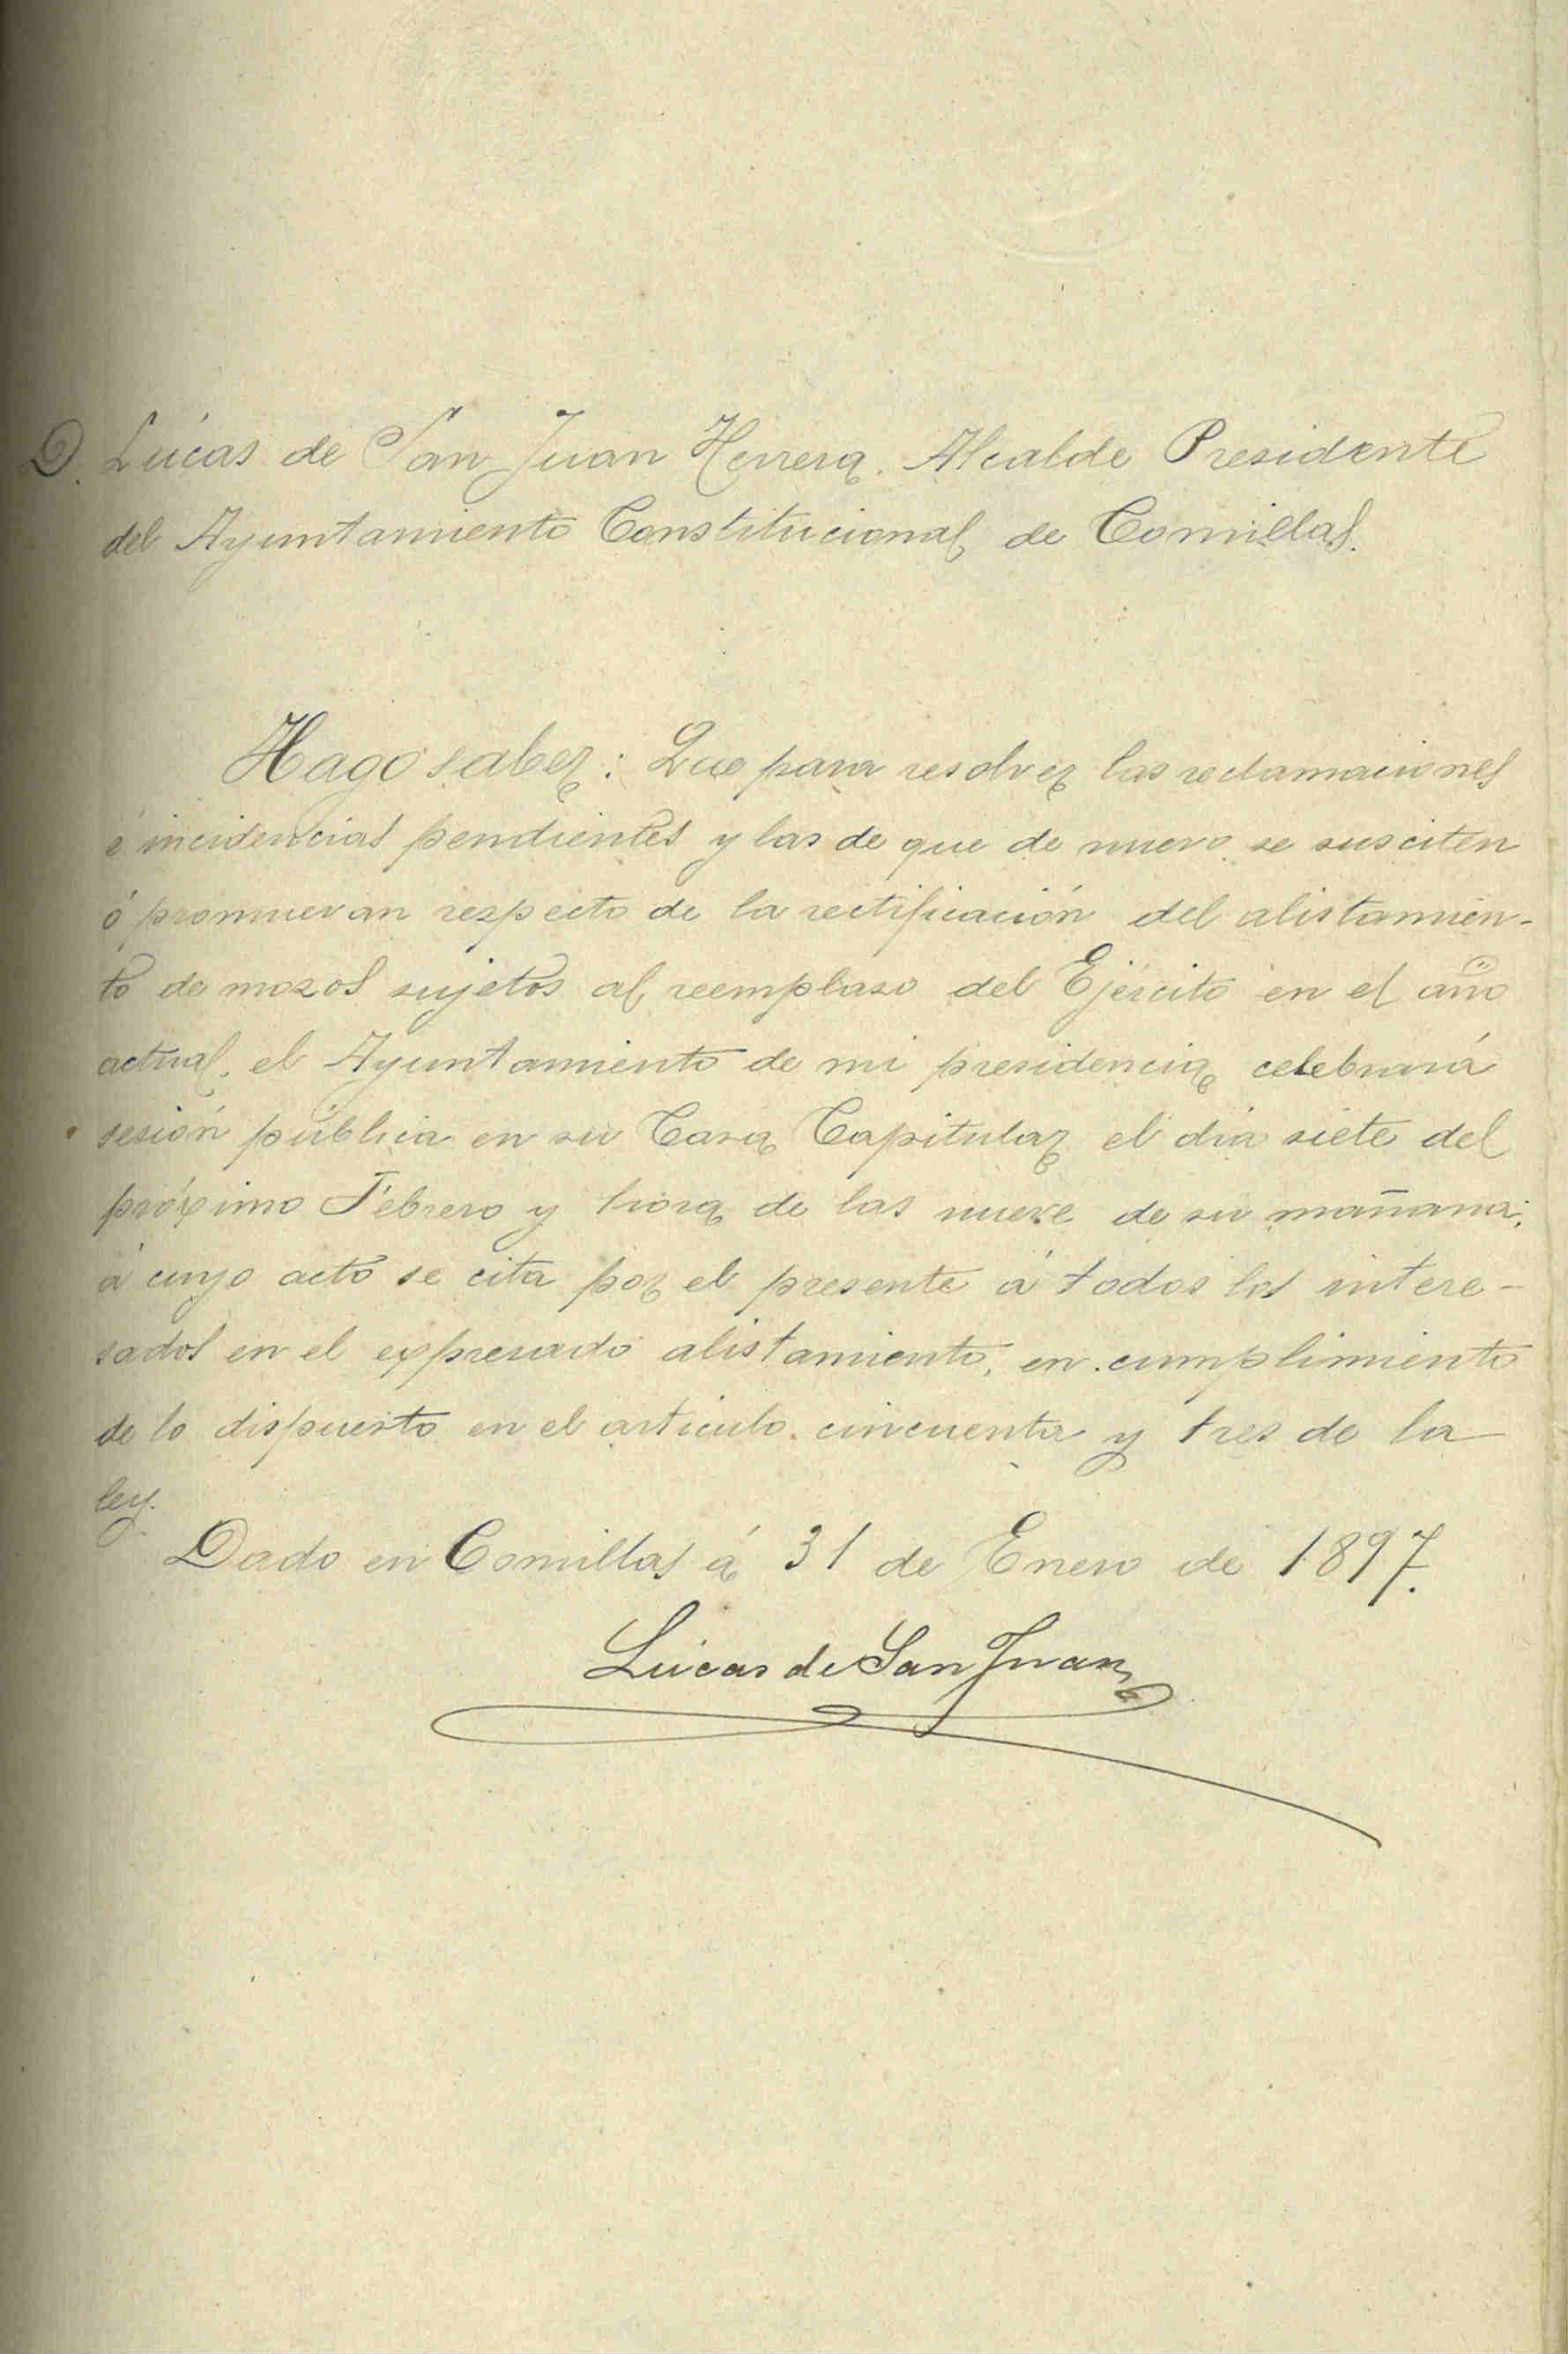 D. Lúcas de San Juan Herrera. Alcalde Presidente
del Ayuntamiento Constitucional de Comillas.
Hago saber: Que para resolver las reclamaciones
é incidencias pendientes y las de que de nuevo se susciten
ó promuevan respecto de la rectificación del alistamien-
to de mozos sujetos al reemplaso del Ejército en el año
actual, el Ayuntamiento de mi presidencia celebrará
sesión pública en su Casa Capitular el dia siete del
próximo Febrero y hora de las nueve de su mañana;
á cuyo acto se cita por el presente á todos los intere-
sados en el expresado alistamiento, en cumplimiento
de lo dispuesto en el articulo cincuenta y tres de la
ley.
Dado en Comillas á 31 de Enero de 1897.
Lúcas de San Juan